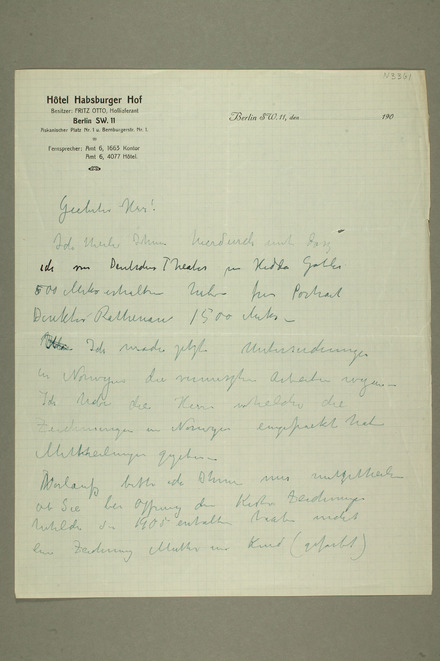 N3361
Hôtel Habsburger Hof
Besitzer: FRITZ OTTO, Hoflieferant
Berlin SW. 11
Askanischer Platz Nr. 1 u. Bernburgerstr. Nr. 1.
Fernsprecher: Amt 6, 1665 Kontor
Amt 6, 4077 Hôtel.
Berlin SW. 11, den 190
Geehrter Herr!
Ich theile Ihnen hierdurch mit dass
ich von Deutsches Theater für Hedda Gabler
500 Mark erhalten habe für Portrait
Direktor Rathenau 1500 Mark –
Ich mache jetzt Untersuchungen
in Norwegen die Arbeiten wegen –
Ich habe die Herrn welche die
Zeichnungen in Norwegen eingepackt hat
Mittheilungen gegeben –
bitte ich Ihnen mir mitzutheilen
ob Sie bei Öffnung der Kiste Zeichnungen
welche Sie 1905 erhalten hat nicht
eine Zeichnung Mutter und Kind (gefärbt)